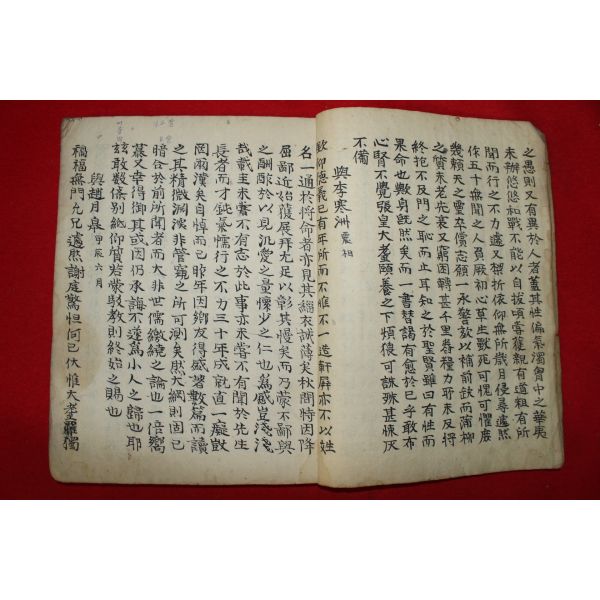 之愚則又有異於人者蓋其性偏氣濁胷中之華夷
未辦悠悠祐戰不能以自拔頃嘗獲親有道粗有所
聞而行之不力遽又樑折依仰無所歲月侵尋遽然
作五十無聞之人負厥初心草生獸死可愧可懼庶
幾賴天之靈卒償志願一承警欬以補前缺而蒲柳
之質未老先衰又窮困轉甚千里舂粮力耶未及將
終抱不及門之恥而止耳知之於聖賢雖曰有性而
果命也歟身旣然矣而一書替謁有愈於已乎敢布
心腎不覺張皇大耋頤養之下煩複可誅殊甚悚仄
不備
與李寒洲 震相
欽仰德義已有年所而不惟不一造軒屏亦不以姓
名一通於將命者亦見其緇衣誠薄矣秋間特因降
屈鄙近始獲展拜尤足以彰其慢矣而乃蒙不鄙與
之酬酢於以見汎愛之量懷少之仁也寓感豈淺淺
哉載圭未嘗不有志於此事亦未嘗不有聞於先生
長者而才鈍氣懦行之不力三十年成就直一癡獃
罔兩漢矣自悼而已昨年因鄕友得盛著數篇而讀
之其精微洞深非管窺之所可測矣然大綱則固已
暗合於前所聞者而大非世儒繳繞之論也一倍嚮
慕又幸得御其或因仍承誨不遂爲小人之歸也耶
玆敢數條別紙仰質若蒙駁敎則終始之賜也
與趙月皐 甲辰六月
禍福無門九兄遽然謝庭驚怛何已伏惟大耋羅獨